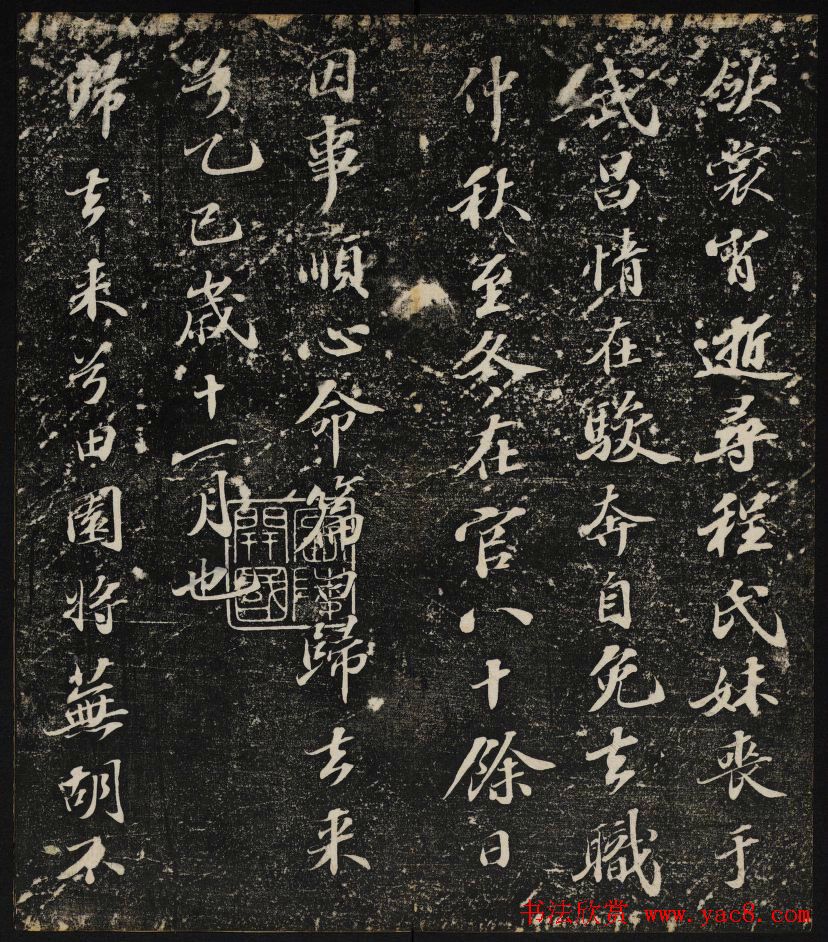 歛裳宵逝尋程氏妹喪于
武昌情在駿奔自免去職
仲秋至冬在官八十餘日
因事順心命篇曰歸去来
兮乙巳歲十一月也
歸去来兮田園将蕪胡不
開國
书法欣赏 www.yac8.com